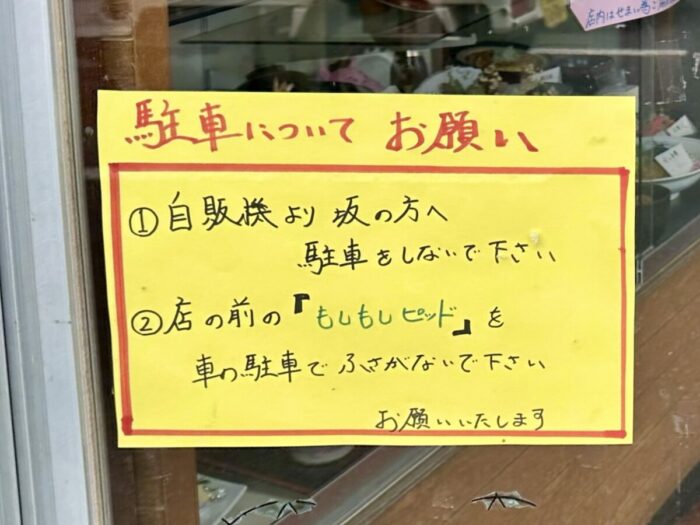 店内はせまい為
駐車について お願い
①自販機より 坂の方へ
駐車をしないで下さい
②店の前の『もしもしピッド』を
車の駐車でふさがないで下さい
お願いいたします